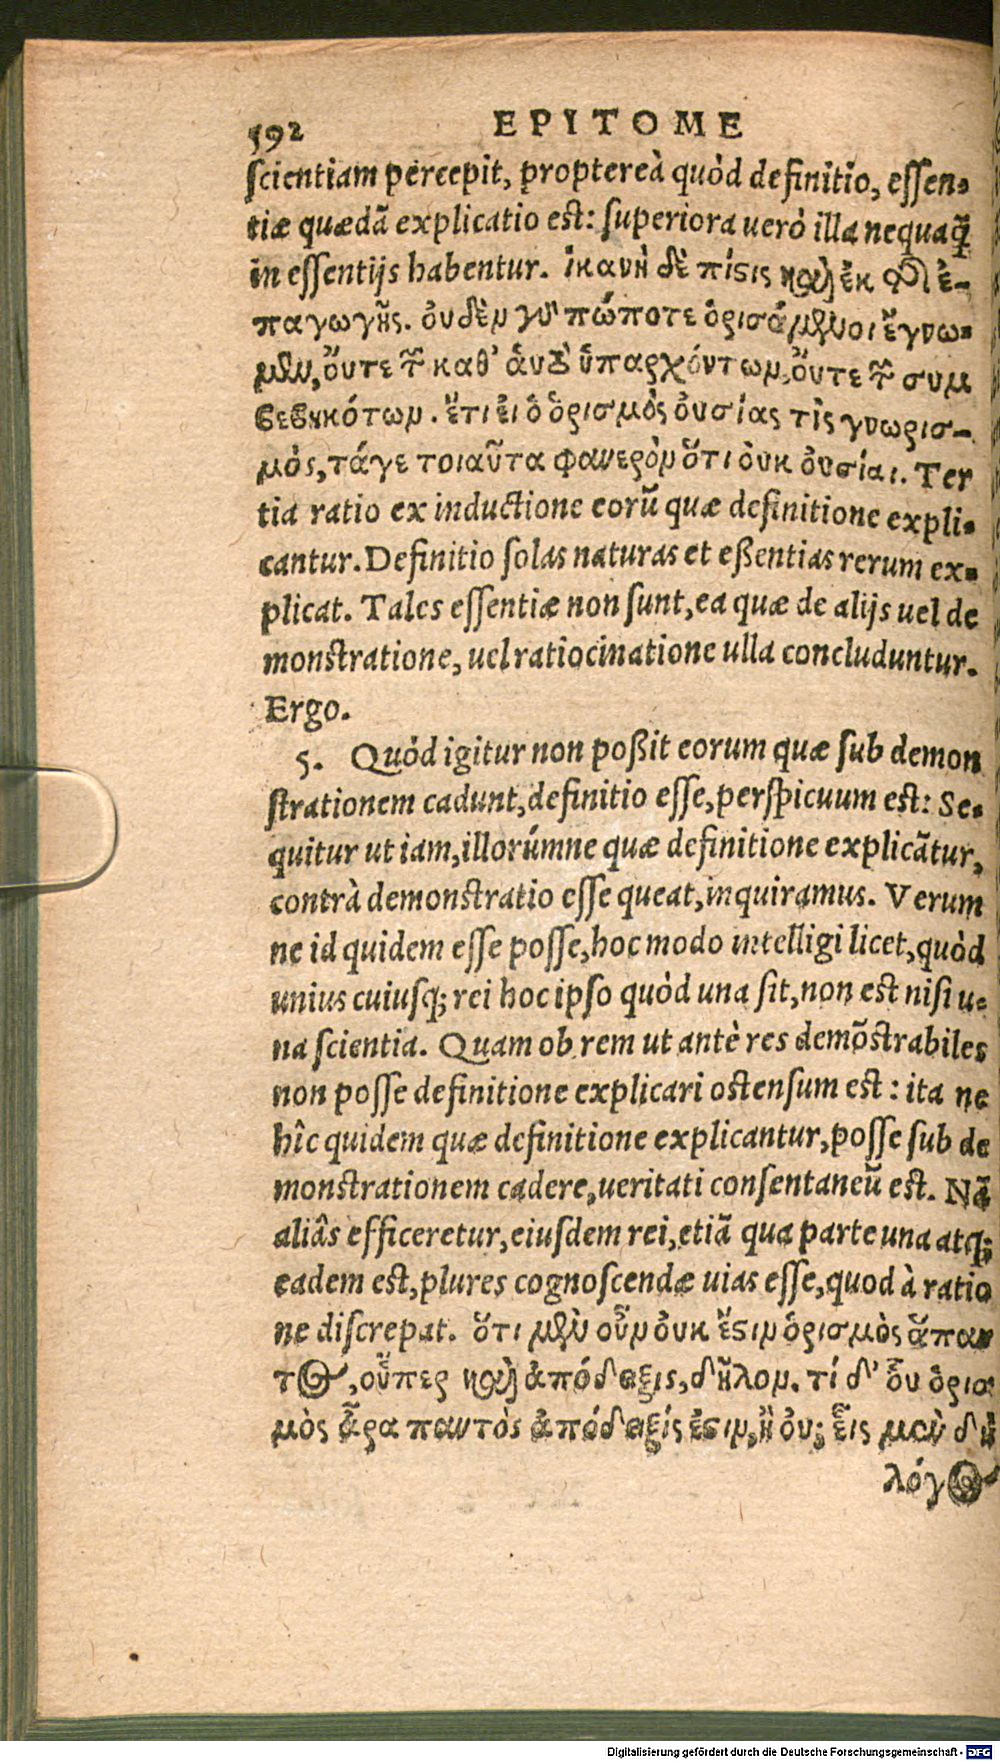 592 EPITOME
scientiam percepit, propterea̍ quo̍d definitio, essen-
tiæ quædā explicatio est: superiora uero̍ illa nequaq̄
in essentijs habentur. ἱκανὴ δὲ πίστις καὶ ἐκ τῆς ἐ-
παγωγῆς. οὐδὲν γὰρ πώποτε ὁρισάμενοι ἔγνω-
μεν, οὔτε τῶν καθ’ αὑτὸ ὑπαρχόντων, οὔτε τῶν συμ
βεβηκότων. ἔτι εἰ ὁ ὁρισμὸς οὐσίας τὶς γνωρισ-
μὸς, τάγε τοιαῦτα φανερὸν ὅτι οὐκ οὐσίαι. Ter
tia ratio ex inductione eorū quæ definitione expli-
cantur. Definitio solas naturas et eßentias rerum ex-
plicat. Tales essentiæ non sunt, ea quæ de alijs uel de
monstratione, uel ratiocinatione ulla concluduntur.
Ergo.
5. Quòd igitur non poßit eorum quæ sub demon
strationem cadunt, definitio esse, perspicuum est: Se-
quitur ut iam, illorúmne quæ definitione explicātur,
contrà demonstratio esse queat, inquiramus. Verum
ne id quidem esse posse, hoc modo intelligi licet, quòd
unius cuiusq; rei hoc ipso quòd una sit, non est nisi u-
na scientia. Quam ob rem ut antè res demōstrabiles
non posse definitione explicari ostensum est: ita ne
hîc quidem quæ definitione explicantur, posse sub de
monstrationem cadere, ueritati consentaneū est. Nā
aliâs efficeretur, eiusdem rei, etiā qua parte una atq;
eadem est, plures cognoscendæ uias esse, quod à ratio
ne discrepat. ὅτι μὲν οὖν οὐκ ἔστιν ὁρισμὸς ἅπαν
τος, οὗπερ καὶ ἀπόδειξις, δῆλον. τί δ’ οὖ ὁρισ
μὸς ἆρα παντὸς ἀπόδειξίς ἐστιν, ἢ οὐ; εἷς μὲν δὴ
λόγος
Digitalisierung gefördert durch die Deutsche Forschungsgemeinschaft - DFG